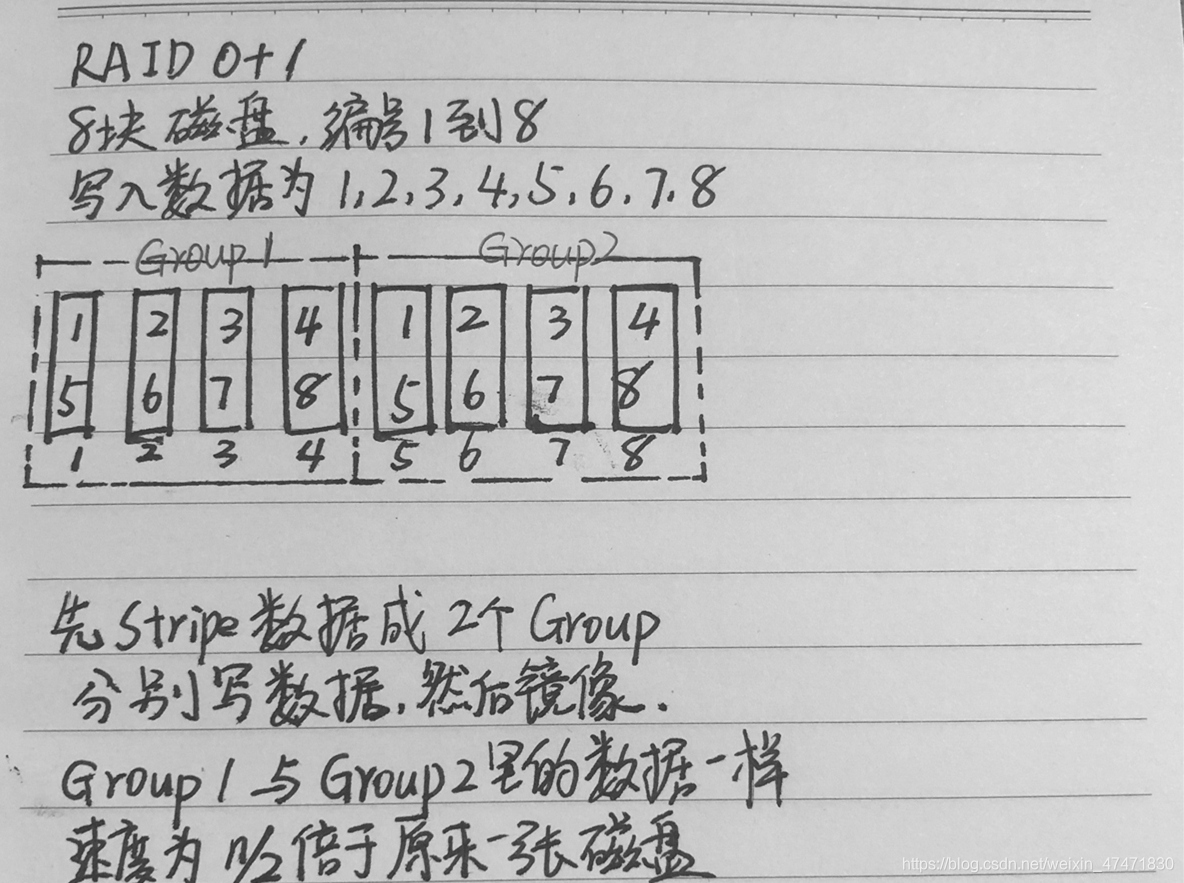 RAID 0+1
8块磁盘,编号1到8
写入数据为1,2,3,4,5,6,7,8
Group 1 Group2
1 2 3 4 1 2 3 4
5 6 7 8 5 6 7 8
1 2 3 4 5 6 7 8
先Stripe数据成2个Group
分别写数据,然后镜像.
Group1与Group2里的数据一样
速度为n/2倍于原来一张磁盘
https://blog.csdn.net/weixin_47471830